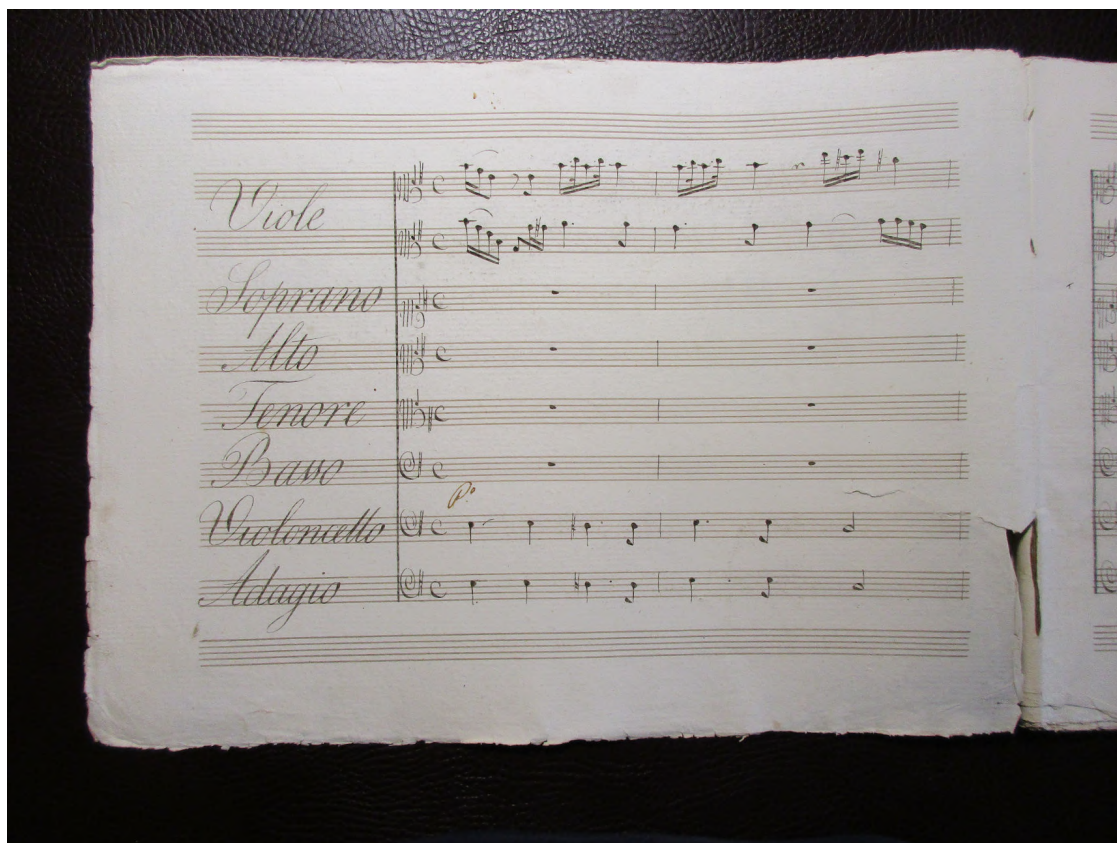 Viole
Soprano
Alto
Tenore
Basso
Po
Violoncello
Adagio